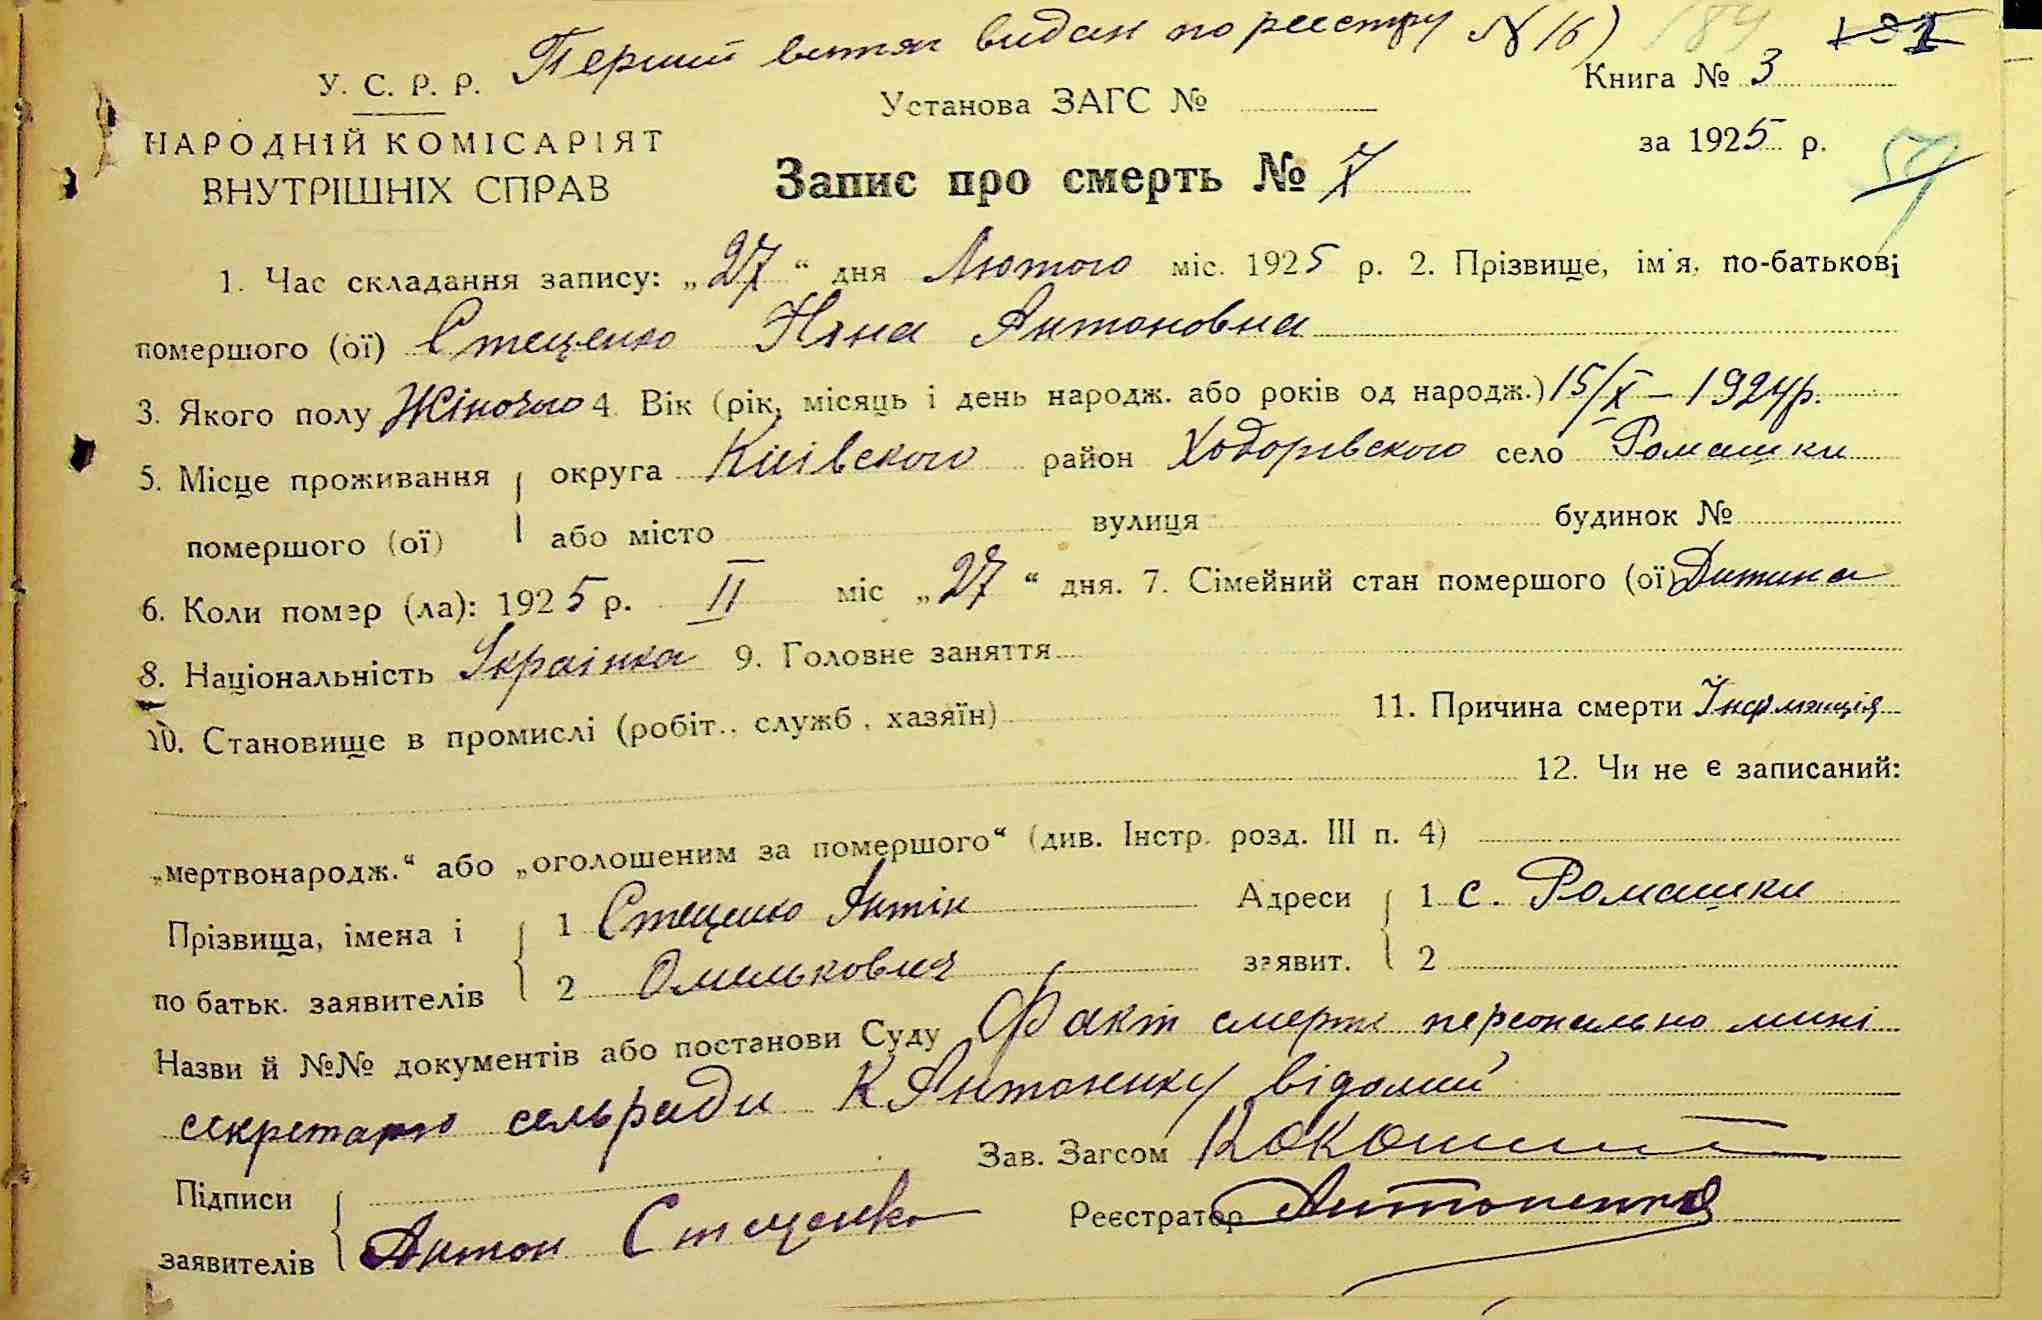 Перший витяг видан по реєстру № 16)
184
У. С. Р. Р.
Установа ЗАГС №
Книга № 3
НАРОДНІЙ КОМІСАРІЯТ
ВНУТРІШНІХ СПРАВ
за 1925 р.
Запис про смерть № 7
1. Час складання запису: „27“ дня Лютого міс. 1925 р. 2. Прізвище, ім'я, по-батькові
помершого (ої) Стеценко Нина Антоновна
3. Якого полу Жіночого 4. Вік (рік, місяць і день народж. або років од народж.) 15/X – 1924р.
5. Місце проживання округа Киівського район Ходорівського село Ромашки
помершого (ої) або місто вулиця будинок №
6. Коли помэр (ла): 1925 р. II міс „27“ дня. 7. Сімейний стан помершого (ої) Дитина
8. Національність Украінка 9. Головне заняття
10. Становище в промислі (робіт., служб, хазяїн) 11. Причина смерти
12. Чи не є записаний:
„мертвонародж.“ або „оголошеним за помершого“ (див. Інстр. розд. III п. 4)
Прізвища, імена і 1 Стеценко Антін Адреси 1 с. Ромашки
по батьк. заявителів 2 Омелькович заявит. 2
Назви й №№ документів або постанови Суду Факт смерти персонально мині
секретарю сельради К Антоненку відомий
Зав. Загсом
Підписи
Реєстратор Антоненко
заявителів Антон Стеценко